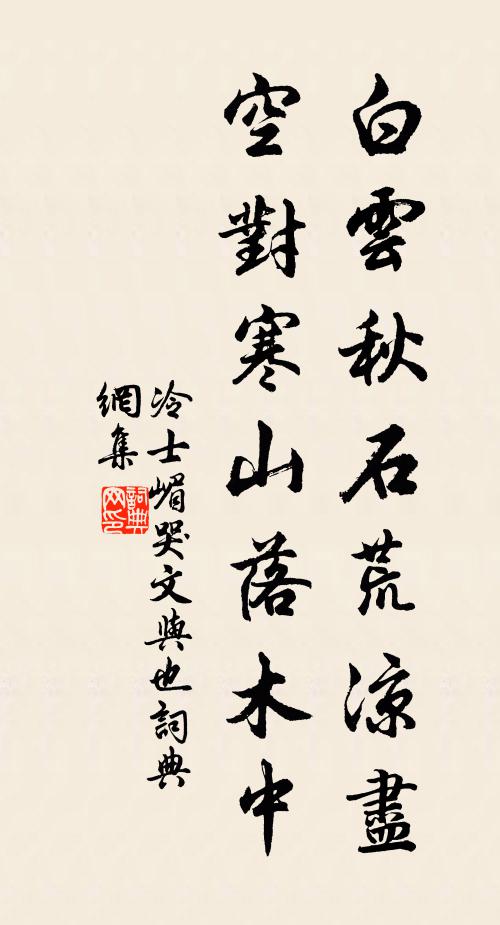 白雲秋石荒涼盡
空對寒山落木中
冷士嵋哭文與也詞典
網集
詞典
网印